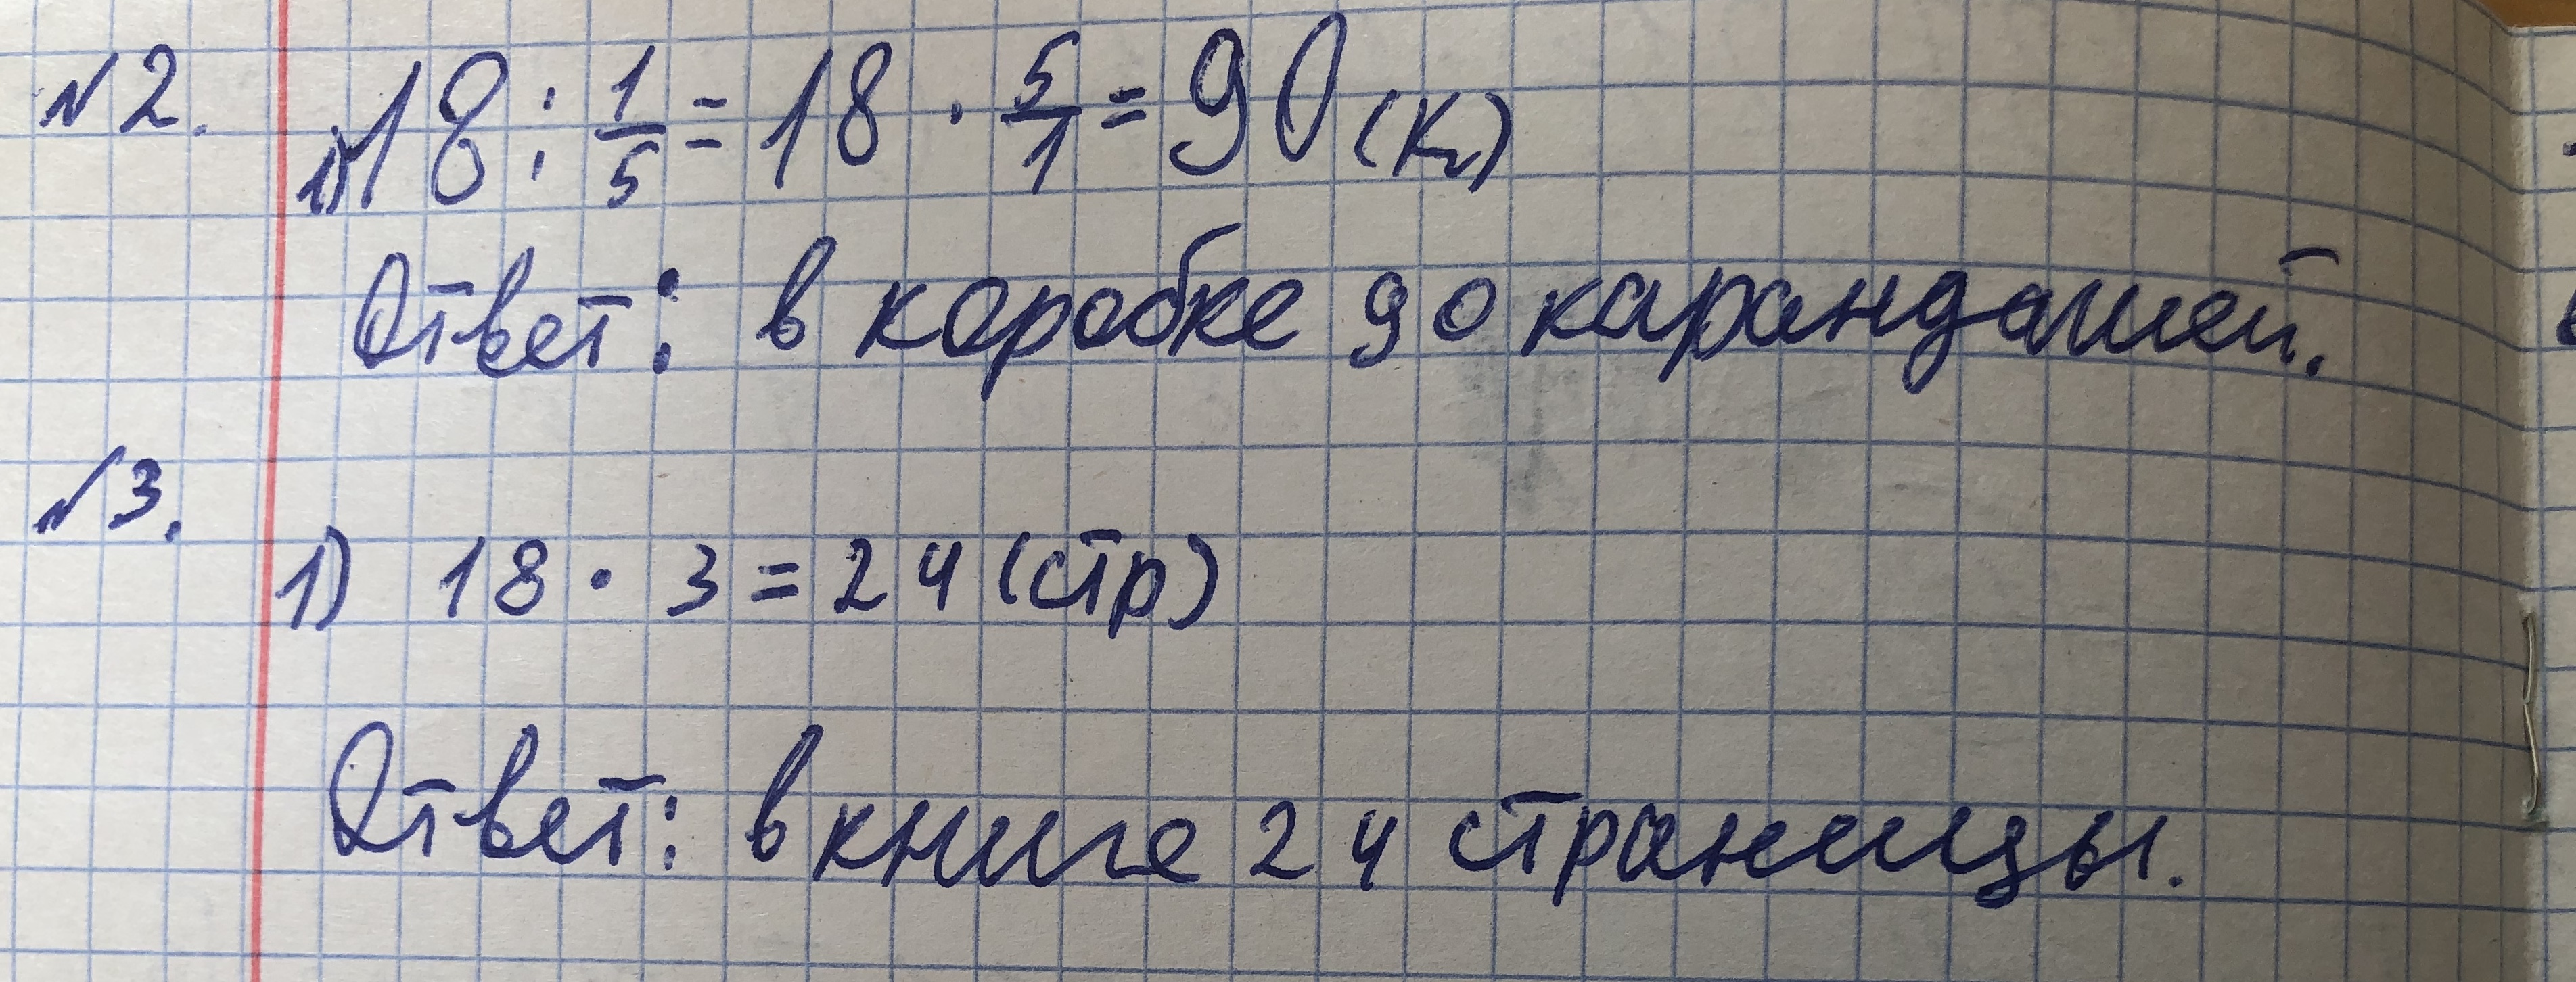 №2. 1) 18 : 1/5 = 18 · 5/1 = 90 (к)
Ответ: в коробке 90 карандашей.
№3.
1) 18 · 3 = 24 (стр)
Ответ: в книге 24 страницы.